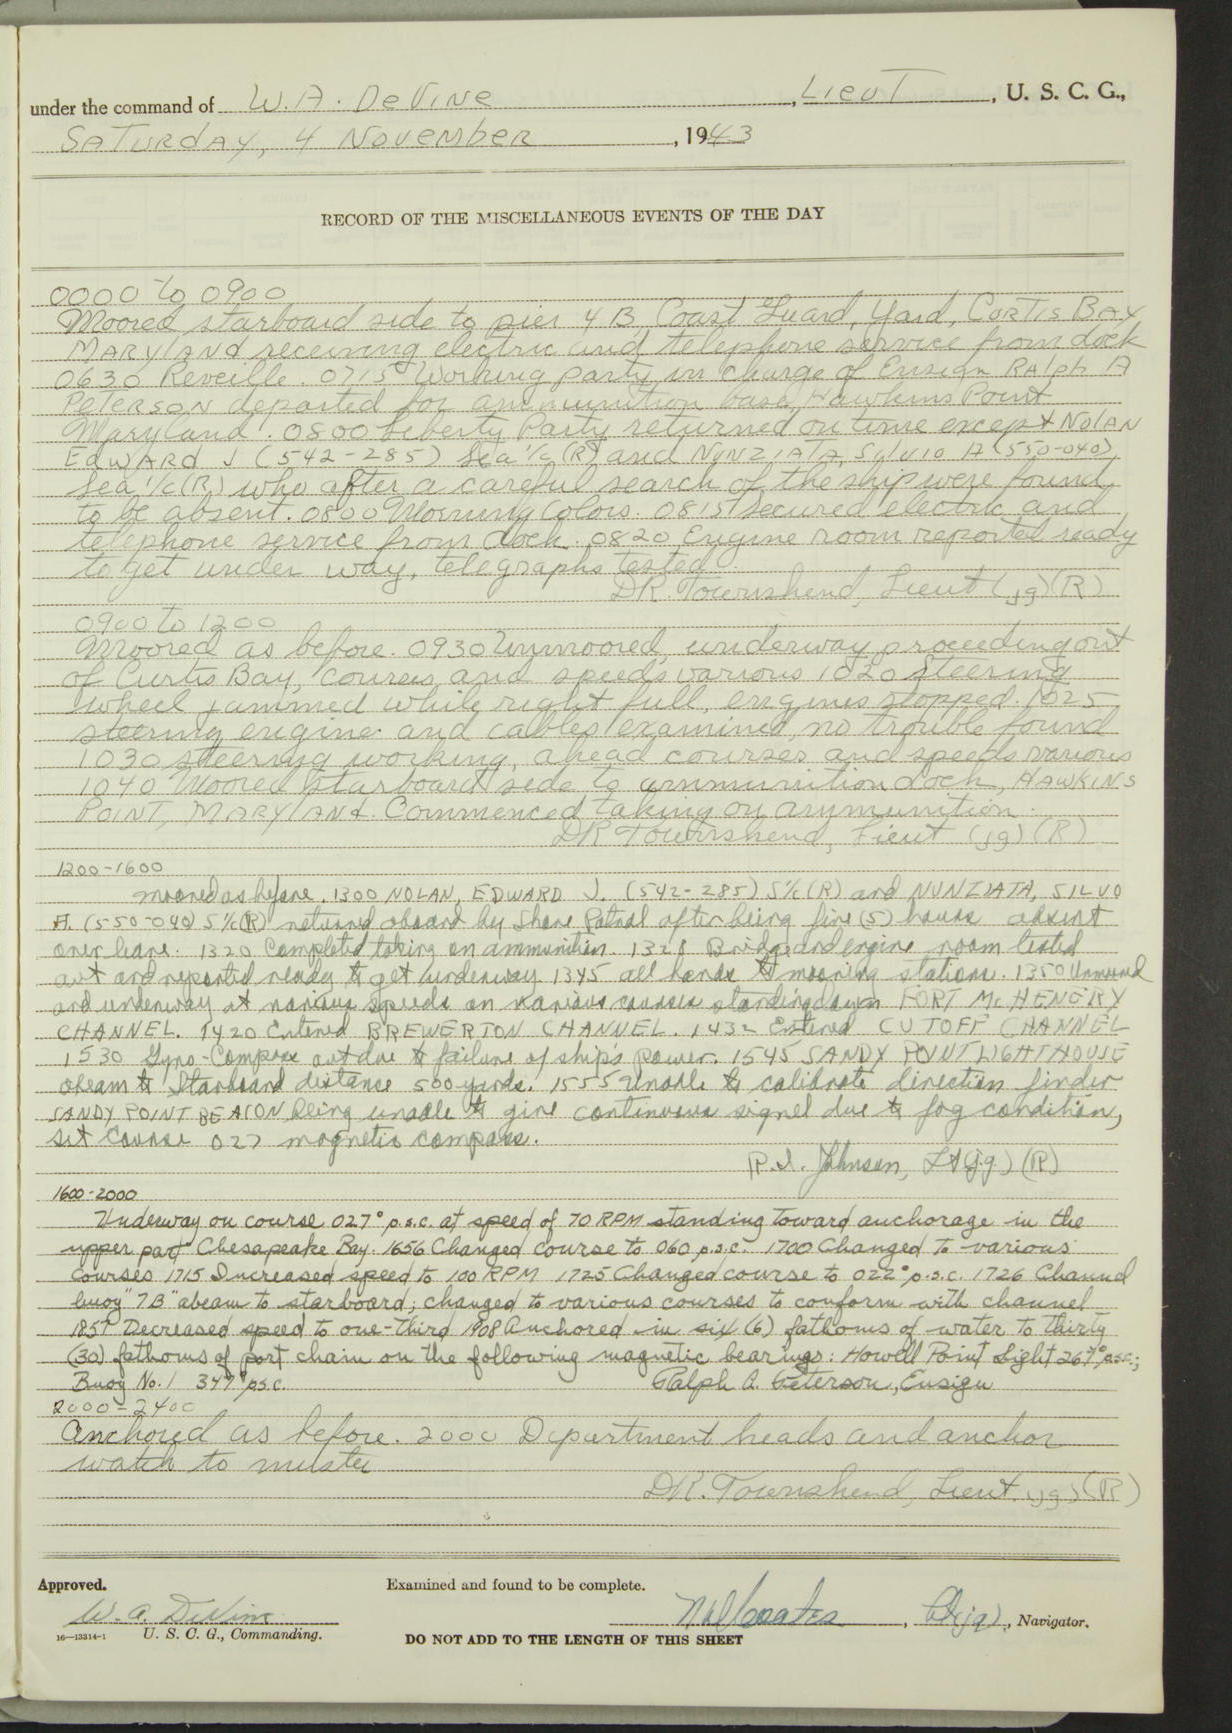 under the command of W. A. DeVine, Lieut, U. S. C. G.,
Saturday, 4 November, 1943
RECORD OF THE MISCELLANEOUS EVENTS OF THE DAY
0000 to 0900
Moored starboard side to pier 4 B, Coast Guard, Yard, Curtis Bay,
Maryland receiving electric and telephone service from dock
0630 Reveille. 0715 Working party in charge of Ensign Ralph A
Peterson departed for ammunition base, Hawkins Point
Maryland. 0800 Liberty Party returned on time except Nolan
Edward J (542-285) Sea 1/c (R) and Nunziata, Silvio A (550-040)
Sea 1/c (R) who after a careful search of the ship were found
to be absent. 0800 Morning Colors. 0815 secured electric and
telephone service from dock. 0820 Engine room reported ready
to get under way, telegraphs tested.
DR. Townshend, Lieut (jg) (R)
0900 to 1200
Moored as before. 0930 Unmoored, underway proceeding out
of Curtis Bay, courses and speeds various 1020 Steering
wheel jammed while right full, engines stopped. 1025
steering engine and cables examined, no trouble found
1030 steering working, ahead courses and speeds various
1040 Moored Starboard side to ammunition dock, Hawkins
Point, Maryland. Commenced taking on ammunition.
DR Townshend, Lieut (jg) (R)
1200-1600
moored as before. 1300 NOLAN, EDWARD J. (542-285) S1/c (R) and NUNZIATA, SILVO
A. (550-040) S1/c (R) returned aboard by Shore Patrol after being five (5) hours absent
over leave. 1320 Completed taking on ammunition. 1328 Bridge and engine room tested
out and reported ready to get underway 1345 all hands to mooring stations. 1350 Unmoored
and underway at various speeds on various courses standing down FORT McHENERY
CHANNEL. 1420 Entered BREWERTON CHANNEL. 1432 Entered CUTOFF CHANNEL
1530 Gyro-Compass out due to failure of ship's power. 1545 SANDY POINT LIGHTHOUSE
abeam to Starboard distance 500 yards. 1555 Unable to calibrate direction finder
SANDY POINT BEACON being unable to give continuous signal due to fog condition,
set course 027 magnetic compass.
R. I. Johnson, Lt (jg) (R)
1600-2000
Underway on course 027° p.s.c. at speed of 70 RPM standing toward anchorage in the
upper part Chesapeake Bay. 1656 Changed course to 060 p.s.c. 1700 Changed to various
courses 1715 Increased speed to 100 RPM 1725 Changed course to 022° p.s.c. 1726 Channel
buoy "7B" abeam to starboard; changed to various courses to conform with channel
1857 Decreased speed to one-third 1908 Anchored in six (6) fathoms of water to thirty
(30) fathoms of port chain on the following magnetic bearings: Howell Point Light 267° p.s.c.;
Buoy No. 1 347° p.s.c. Ralph A. Peterson, Ensign
2000-2400
Anchored as before. 2000 Department heads and anchor
watch to muster
DR. Townshend, Lieut. (jg) (R)
Approved. Examined and found to be complete.
W. A. DeVine, Lt (jg), Navigator.
16—13314-1 U. S. C. G., Commanding. DO NOT ADD TO THE LENGTH OF THIS SHEET